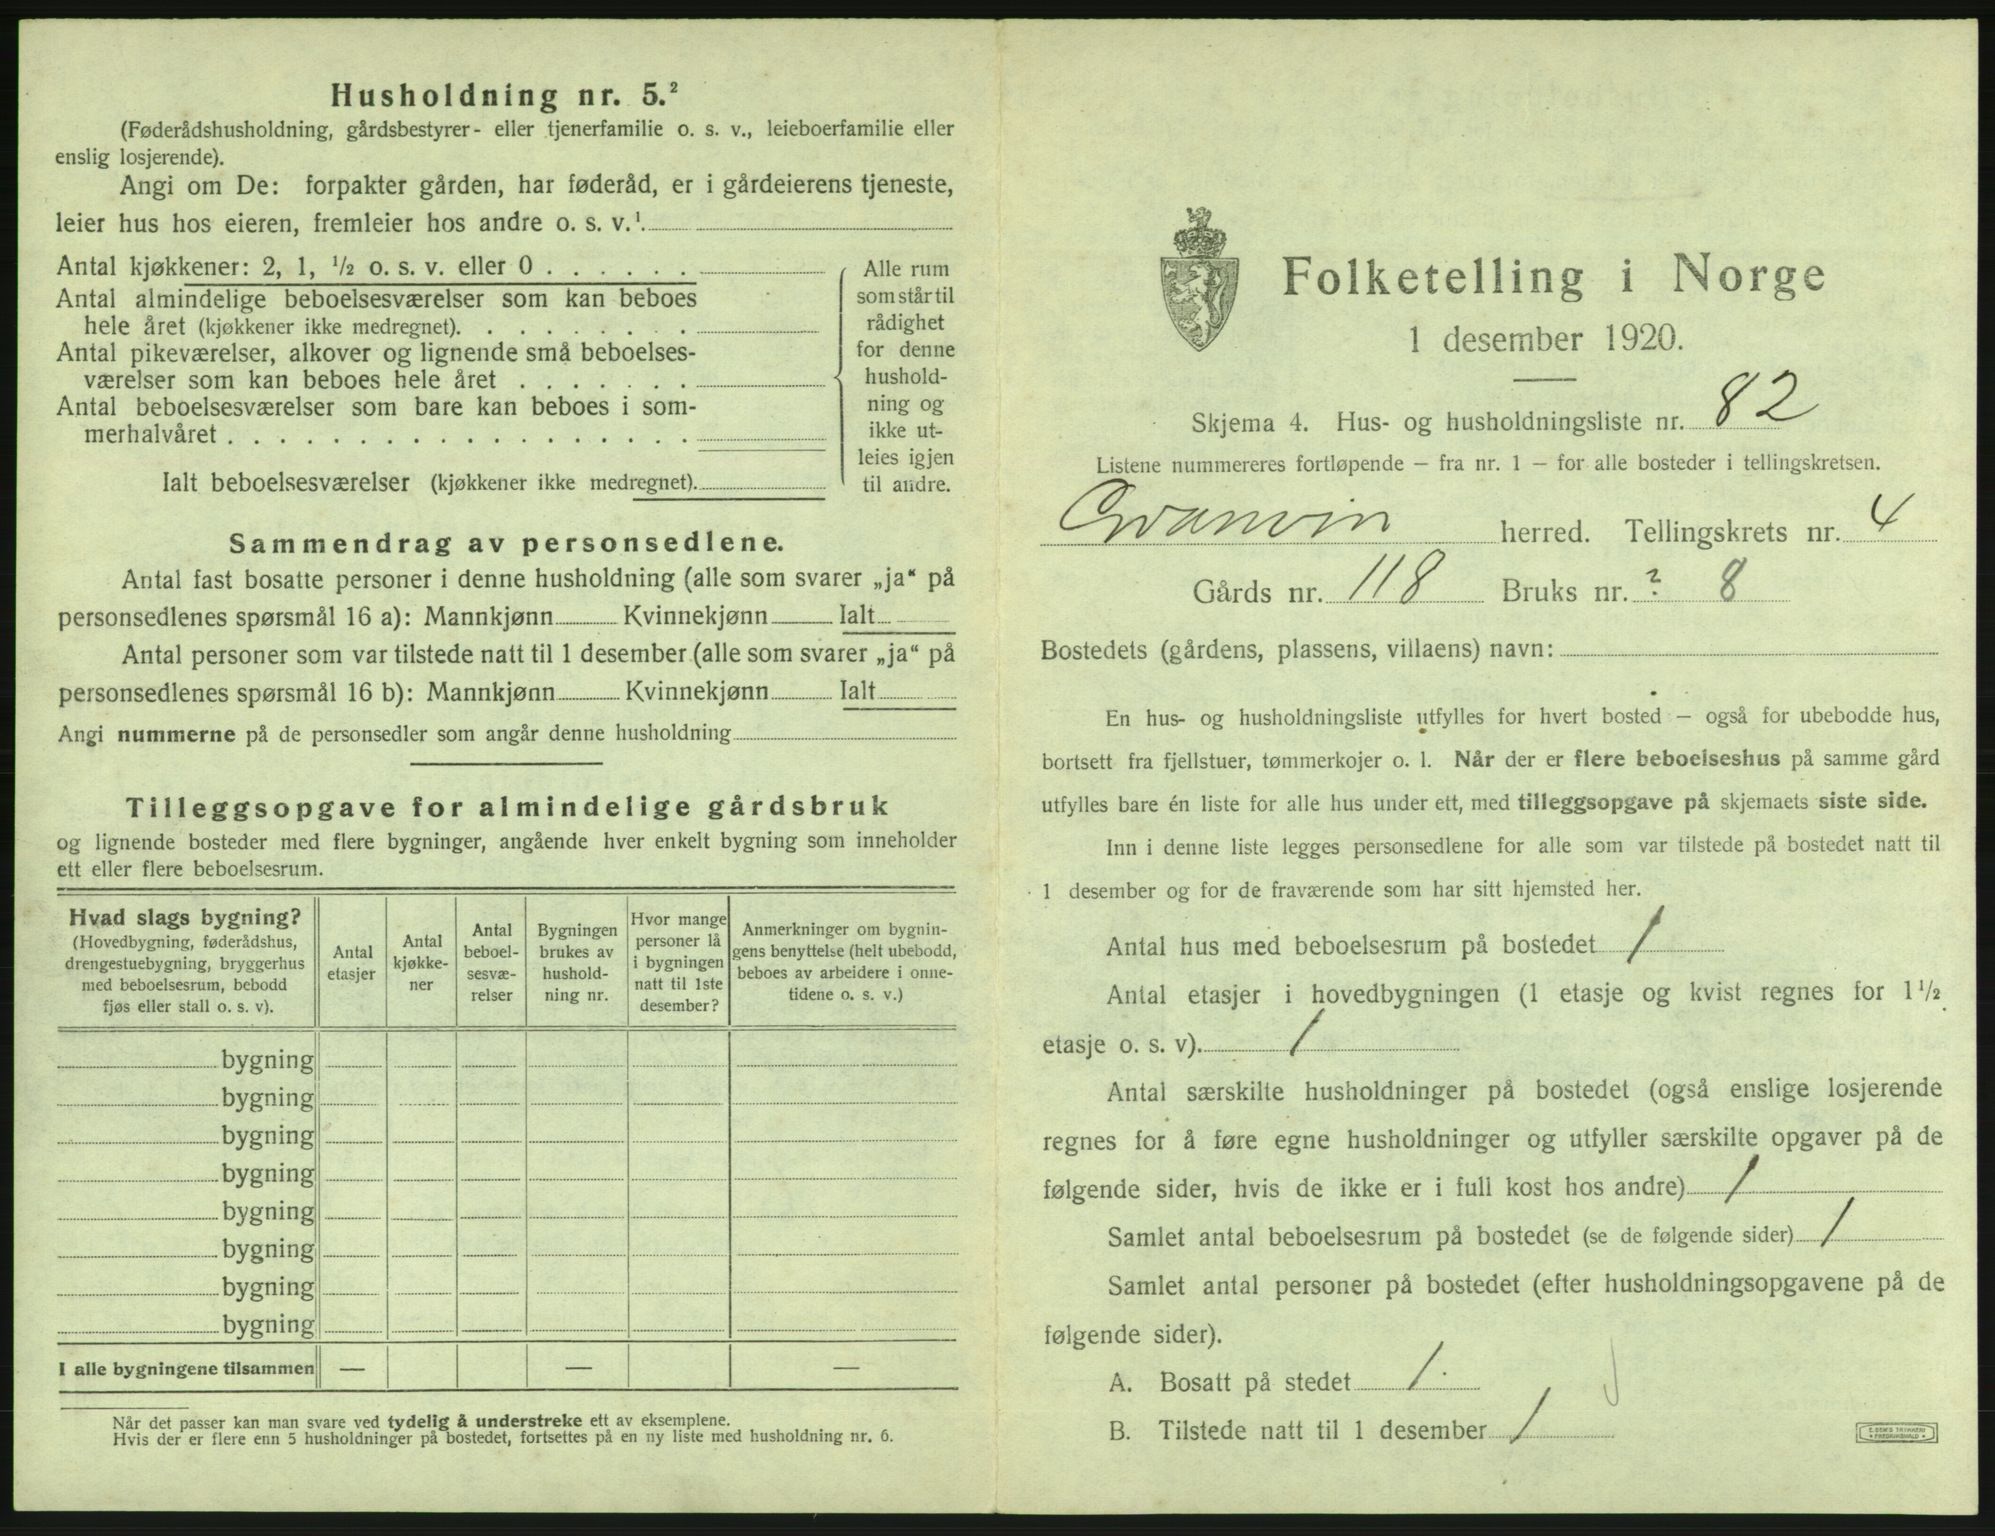 Husholdning nr. 5.²
(Føderådshusholdning, gårdsbestyrer- eller tjenerfamilie o. s. v., leieboerfamilie eller
enslig losjerende).
Angi om De: forpakter gården, har føderåd, er i gårdeierens tjeneste,
leier hus hos eieren, fremleier hos andre o. s. v.¹.
Antal kjøkkener: 2, 1, ½ o. s. v. eller 0 . . . . . .
Antal almindelige beboelsesværelser som kan beboes
hele året (kjøkkener ikke medregnet). . . . . . . . .
Antal pikeværelser, alkover og lignende små beboelses-
værelser som kan beboes hele året . . . . . . .
Antal beboelsesværelser som bare kan beboes i som-
merhalvåret . . . . . . . . . . . . . . . . . .
Ialt beboelsesværelser (kjøkkener ikke medregnet).
Alle rum
som står til
rådighet
for denne
hushold-
ning og
ikke ut-
leies igjen
til andre.
Sammendrag av personsedlene.
Antal fast bosatte personer i denne husholdning (alle som svarer „ja“ på
personsedlenes spørsmål 16 a): Mannkjønn Kvinnekjønn Ialt
Antal personer som var tilstede natt til 1 desember (alle som svarer „ja“ på
personsedlenes spørsmål 16 b): Mannkjønn Kvinnekjønn Ialt
Angi nummerne på de personsedler som angår denne husholdning
Tilleggsopgave for almindelige gårdsbruk
og lignende bosteder med flere bygninger, angående hver enkelt bygning som inneholder
ett eller flere beboelsesrum.
Hvad slags bygning?
(Hovedbygning, føderådshus,
drengestuebygning, bryggerhus
med beboelsesrum, bebodd
fjøs eller stall o. s. v).
Antal
etasjer
Antal
kjøkke-
ner
Antal
beboel-
sesvæ-
relser
Bygningen
brukes av
hushold-
ning nr.
Hvor mange
personer lå
i bygningen
natt til 1ste
desember?
Anmerkninger om bygnin-
gens benyttelse (helt ubebodd,
beboes av arbeidere i onne-
tidene o. s. v.)
bygning
bygning
bygning
bygning
bygning
bygning
bygning
bygning
I alle bygningene tilsammen — — —
Når det passer kan man svare ved tydelig å understreke ett av eksemplene.
Hvis der er flere enn 5 husholdninger på bostedet, fortsettes på en ny liste med husholdning nr. 6.
Folketelling i Norge
1 desember 1920.
Skjema 4. Hus- og husholdningsliste nr. 82
Listene nummereres fortløpende – fra nr. 1 – for alle bosteder i tellingskretsen.
Granvin herred. Tellingskrets nr. 4
Gårds nr. 118 Bruks nr. ? 8
Bostedets (gårdens, plassens, villaens) navn:
En hus- og husholdningsliste utfylles for hvert bosted – også for ubebodde hus,
bortsett fra fjellstuer, tømmerkojer o. l. Når der er flere beboelseshus på samme gård
utfylles bare én liste for alle hus under ett, med tilleggsopgave på skjemaets siste side.
Inn i denne liste legges personsedlene for alle som var tilstede på bostedet natt til
1 desember og for de fraværende som har sitt hjemsted her.
Antal hus med beboelsesrum på bostedet 1
Antal etasjer i hovedbygningen (1 etasje og kvist regnes for 1½
etasje o. s. v). 1
Antal særskilte husholdninger på bostedet (også enslige losjerende
regnes for å føre egne husholdninger og utfyller særskilte opgaver på de
følgende sider, hvis de ikke er i full kost hos andre) 1
Samlet antal beboelsesrum på bostedet (se de følgende sider) 1
Samlet antal personer på bostedet (efter husholdningsopgavene på de
følgende sider).
A. Bosatt på stedet 1.
B. Tilstede natt til 1 desember 1